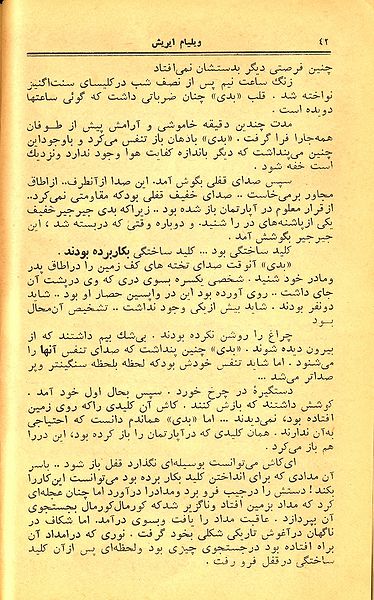 ۴۲ ویلیام ایریش
چنین فرصتی دیگر بدستشان نمی‌افتاد
زنگ ساعت نیم پس از نصف شب درکلیسای سنت‌اگنیز
نواخته شد . قلب «بدی» چنان ضرباتی داشت که گوئی ساعتها
دویده است .
مدت چندین دقیقه خاموشی و آرامش پیش از طوفان
همه‌جارا فرا گرفت . «بدی» بادهان باز تنفس می‌کرد و باوجوداین
چنین می‌پنداشت که دیگر باندازه کفایت هوا وجود ندارد ونزدیک
است خفه شود .
سپس صدای قفلی بگوش آمد. این صدا ازآنطرف.. ازاطاق
مجاور برمی‌خاست .. صدای خفیف قفلی بودکه مقاومتی نمی‌کرد..
ازقرار معلوم در آپارتمان باز شده بود .. زیراکه بدی جیرجیر خفیف
یکی ازپاشنه‌های در را شنید. و دوباره وقتی که دربسته شد ، این
جیرجیر بگوشش آمد .
کلید ساختگی بود ... کلید ساختگی بکاربرده بودند .
«بدی» آنوقت صدای تخته های کف زمین را دراطاق پدر
ومادر خود شنید . شخصی یکسره بسوی دری که وی درپشت آن
جای داشت .. روی آورده بود این در واپسین حصار او بود .. شاید
دونفر بودند . شاید بیش ازیکی وجود نداشت .. تشخیص آن‌محال
بود
چراغ را روشن نکرده بودند . بی‌شك بیم داشتند که از
بیرون دیده شوند . «بدی» چنین پنداشت که صدای تنفس آنها را
می‌شنود . اما شاید تنفس خودش بودکه لحظه بلحظه سنگینتر وپر
صداتر می‌شد ...
دستگیرهٔ در چرخ خورد . سپس بحال اول خود آمد .
کوشش داشتند که بازش کنند . کاش آن کلیدی راکه روی زمین
افتاده بود، نمی‌دیدند ... اما «بدی» هماندم دانست که احتیاجی
به‌آن ندارند . همان کلیدی که درآپارتمان را باز کرده بود، این دررا
هم باز می‌کرد .
ای‌کاش می‌توانست بوسیله‌ای نگذارد قفل باز شود .. باسر
آن مدادی که برای انداختن کلید بکار برده بود می‌توانست این‌کاررا
بکند! دستش را درجیب فرو برد ومدادرا درآورد اما چنان عجله‌ای
کرد که مداد بزمین افتاد وناگزیر شدکه کورمال‌کورمال بجستجوی
آن بپردازد . عاقبت مداد را یافت وبسوی درآمد. اما شکاف در
ناگهان درآغوش تاریکی شکلی بخود گرفت . نوری که درامداد آن
براه افتاده بود درجستجوی چیزی بود ولحظه‌ای پس ازآن کلید
ساختگی در قفل فرو رفت .